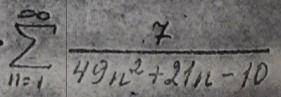 \sum_{n=1}^{\infty} \frac{7}{49n^2+21n-10}